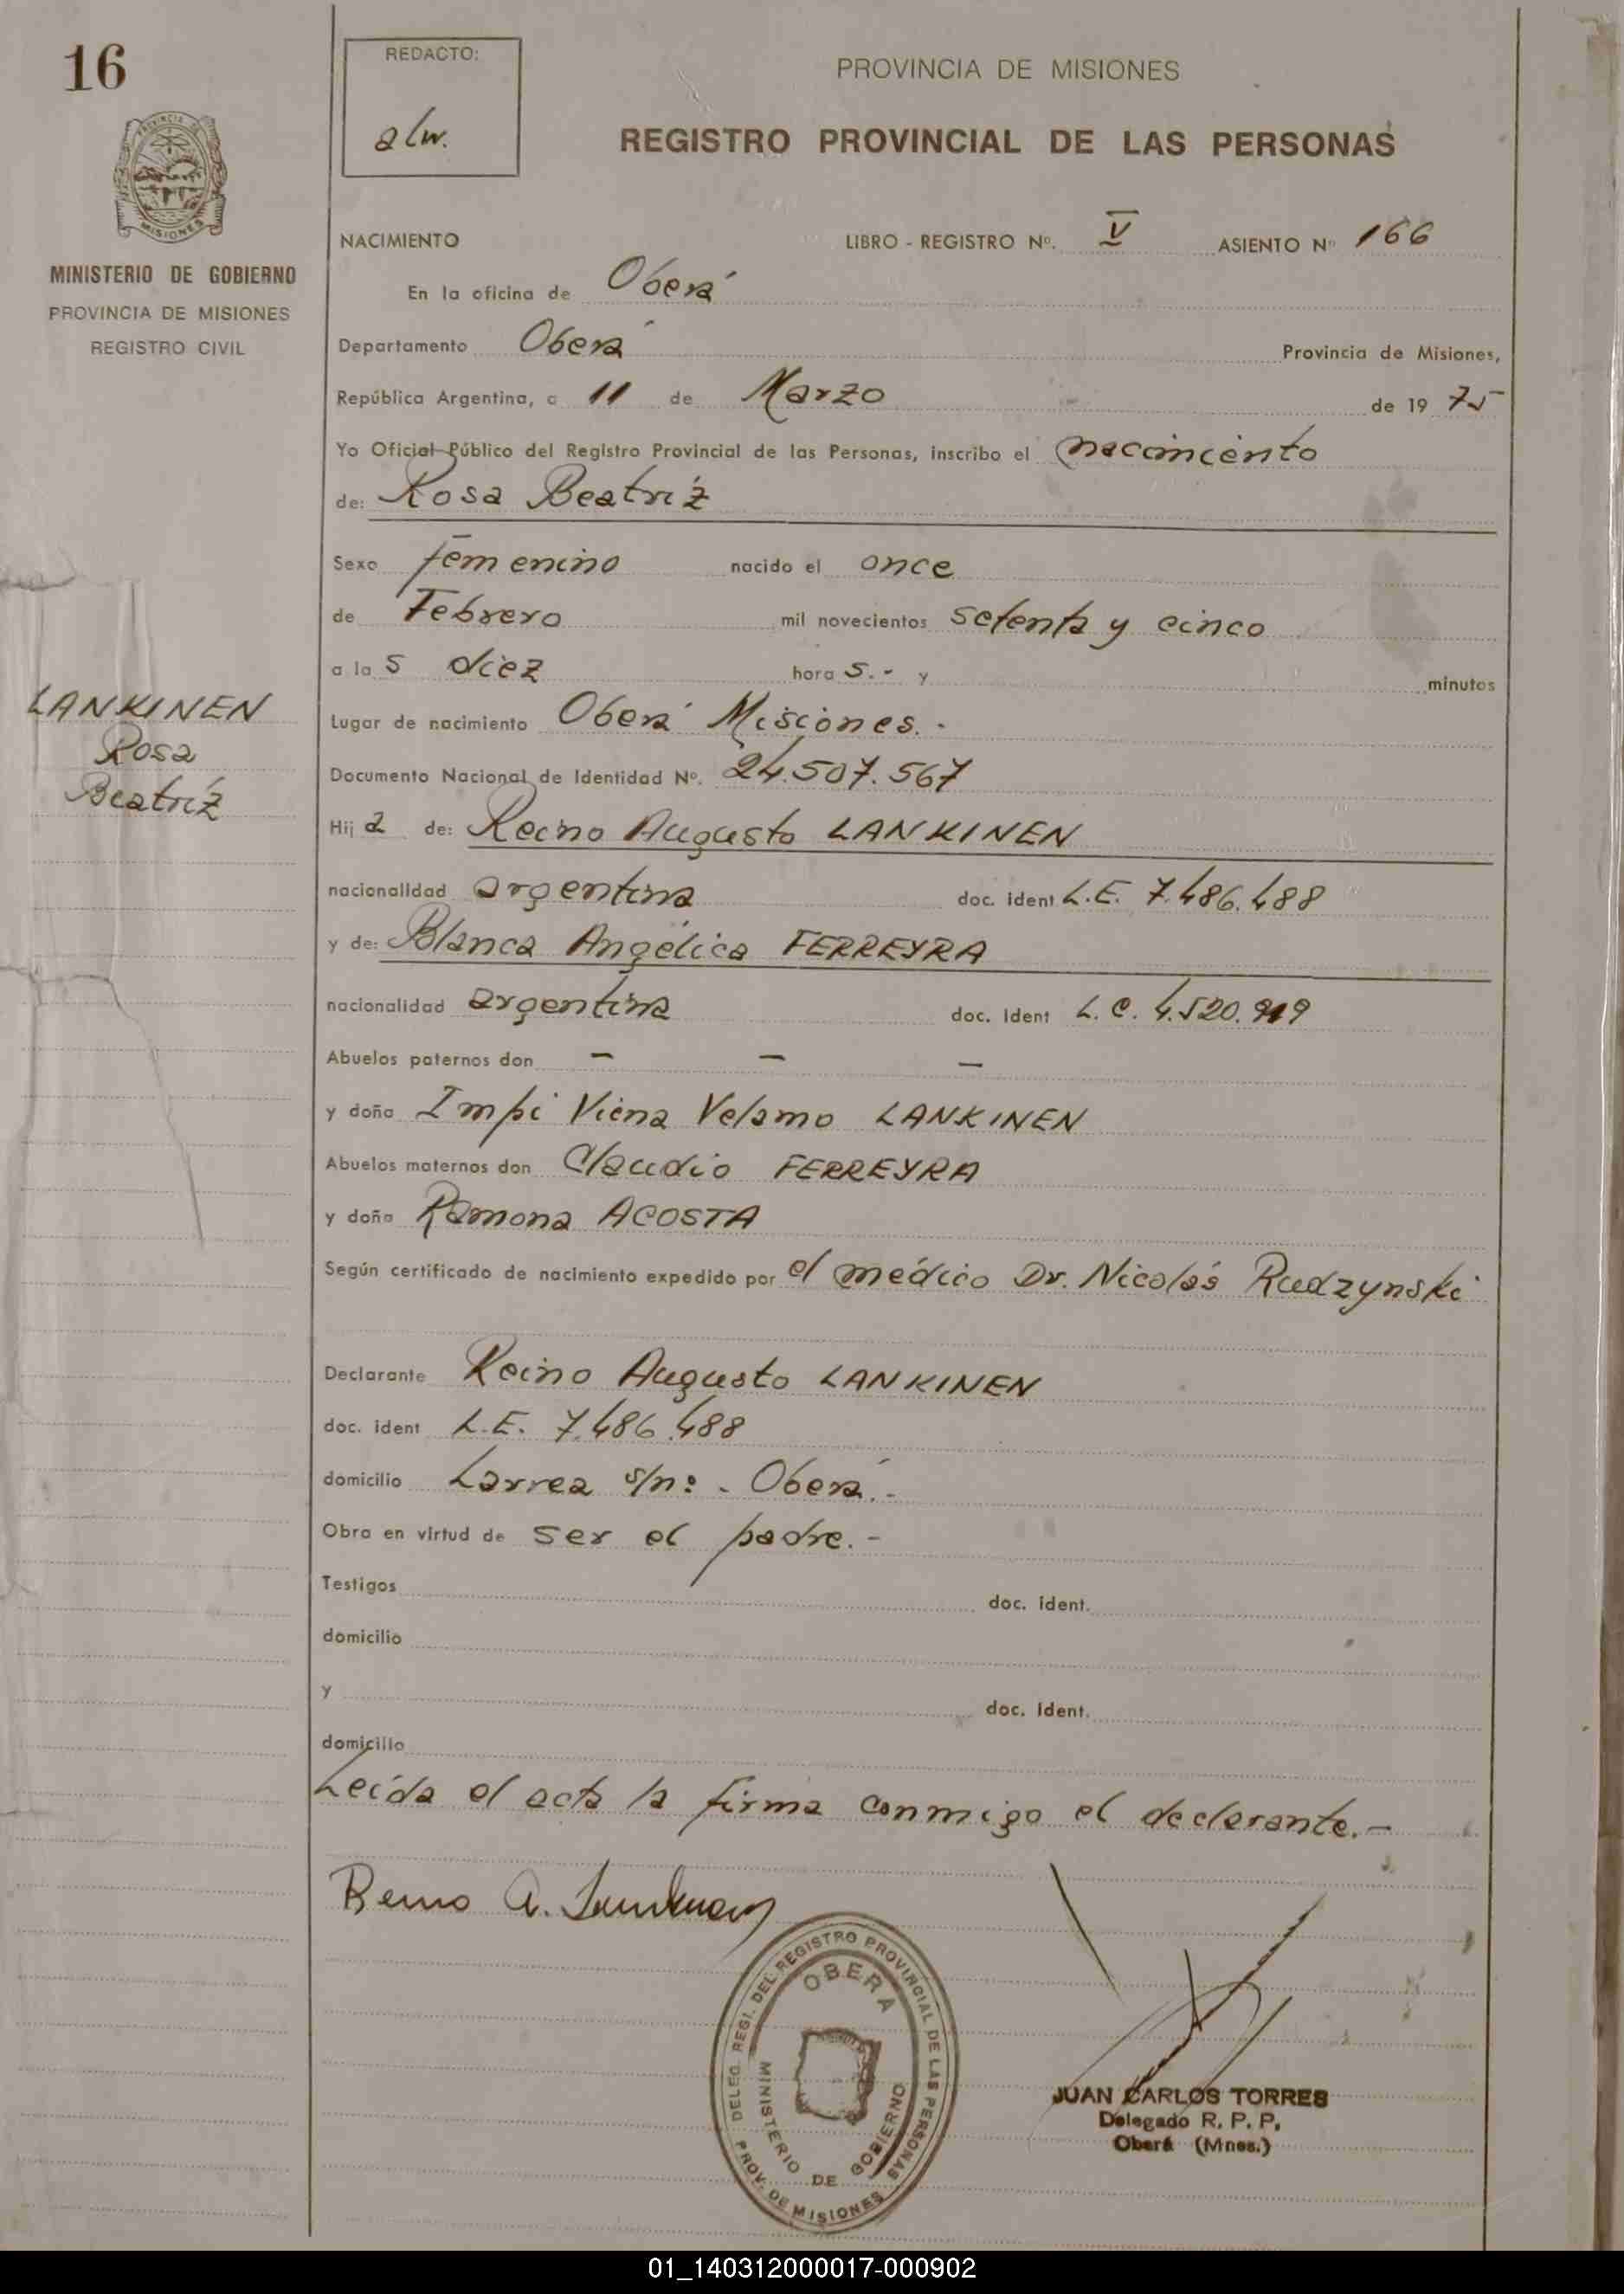 16
REDACTO:
alw.
PROVINCIA DE MISIONES
REGISTRO PROVINCIAL DE LAS PERSONAS
PROVINCIA DE MISIONES
MINISTERIO DE GOBIERNO
PROVINCIA DE MISIONES
REGISTRO CIVIL
NACIMIENTO LIBRO - REGISTRO Nº. V ASIENTO Nº 166
En la oficina de Oberá
Departamento Oberá Provincia de Misiones,
República Argentina, a 11 de Marzo de 19 75
Yo Oficial Público del Registro Provincial de las Personas, inscribo el nacimiento
de: Rosa Beatriz
Sexo femenino nacido el once
de Febrero mil novecientos setenta y cinco
a la s diez hora s.- y minutos
LANKINEN
Rosa
Beatriz
Lugar de nacimiento Oberá Misiones.-
Documento Nacional de Identidad Nº. 24.507.567
Hij a de: Reino Augusto LANKINEN
nacionalidad argentina doc. ident L.E. 7.486.488
y de: Blanca Angélica FERREYRA
nacionalidad argentina doc. ident L.C. 4.520.919
Abuelos paternos don - - -
y doña Impi Viena Velamo LANKINEN
Abuelos maternos don Claudio FERREYRA
y doña Ramona ACOSTA
Según certificado de nacimiento expedido por el médico Dr. Nicolás Rudzynski
Declarante Reino Augusto LANKINEN
doc. ident L.E. 7.486.488
domicilio Larrea s/nº - Oberá.-
Obra en virtud de ser el padre.-
Testigos doc. ident.
domicilio
y doc. ident.
domicilio
Leída el acta la firma conmigo el declarante.-
Reino A. Lankinen
DELEG. REGI. DEL REGISTRO PROVINCIAL DE LAS PERSONAS
OBERA
MINISTERIO DE GOBIERNO
PROV. DE MISIONES
JUAN CARLOS TORRES
Delegado R. P. P.
Oberá (Mnes.)
01_140312000017-000902